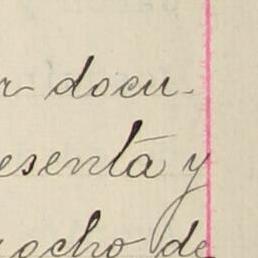 r docu-
esenta y
ocho de